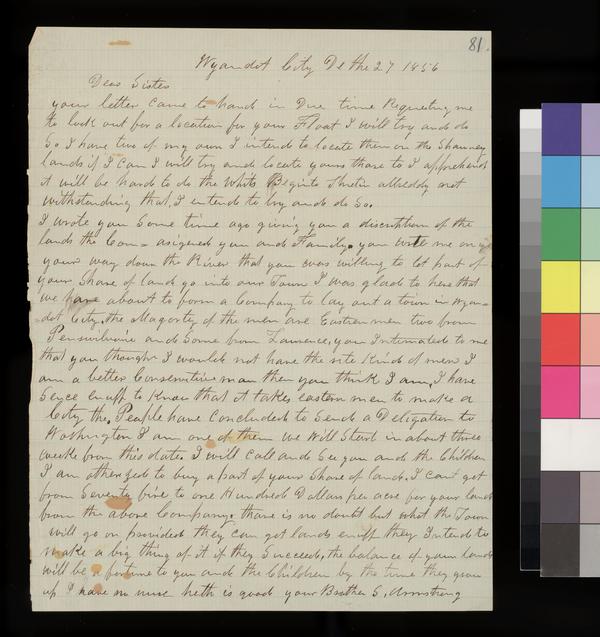 81.
Wyandot City De the 27 1856
Dear Sister
your letter came to hand in Due time Requesting me
to look out for a location for your Float I will try and do
So I have two of my own I intend to locate them on the Shawney
lands if I can I will try and locate yours thare to I apprehend
it will be hard to do the whits Begin to thretin allreddy not
withstanding that, I intend to try and do So.
I wrote you Some time ago giving you a discription of the
lands the Com= asigned you and Family. you wrote me on
your way down the River that you was willing to let part of
your Share of land go into our Town I was glad to hear that
we have about to form a Company to lay out a town in Wyan=
dot City. the Magority of the men are Eastren men two from
Pensilvania and Some from Lawrence, you Intimated to me
that you thought I would not have the rite Kind of men I
am a better Conservitive man then you think I am, I have
Sence enuff to Know that it takes eastern men to make a
City the People have Concluded to Send a Deligation to
Washington I am one of them we Will Start in about three
weeks from this date I will call and See you and the Children
I am otherized to buy a part of your Share of land. I can get
from Seventy five to one Hundred Dollars per acre for your land
from the above Company. thare is no doubt but what the Town
will go on provided they can get lands enuff they Intend to
make a big thing of it if they Succeed, the balance of your land
will be a fortune to you and the Children by the time they grow
up I have no more helth is good your Brother S. Armstrong